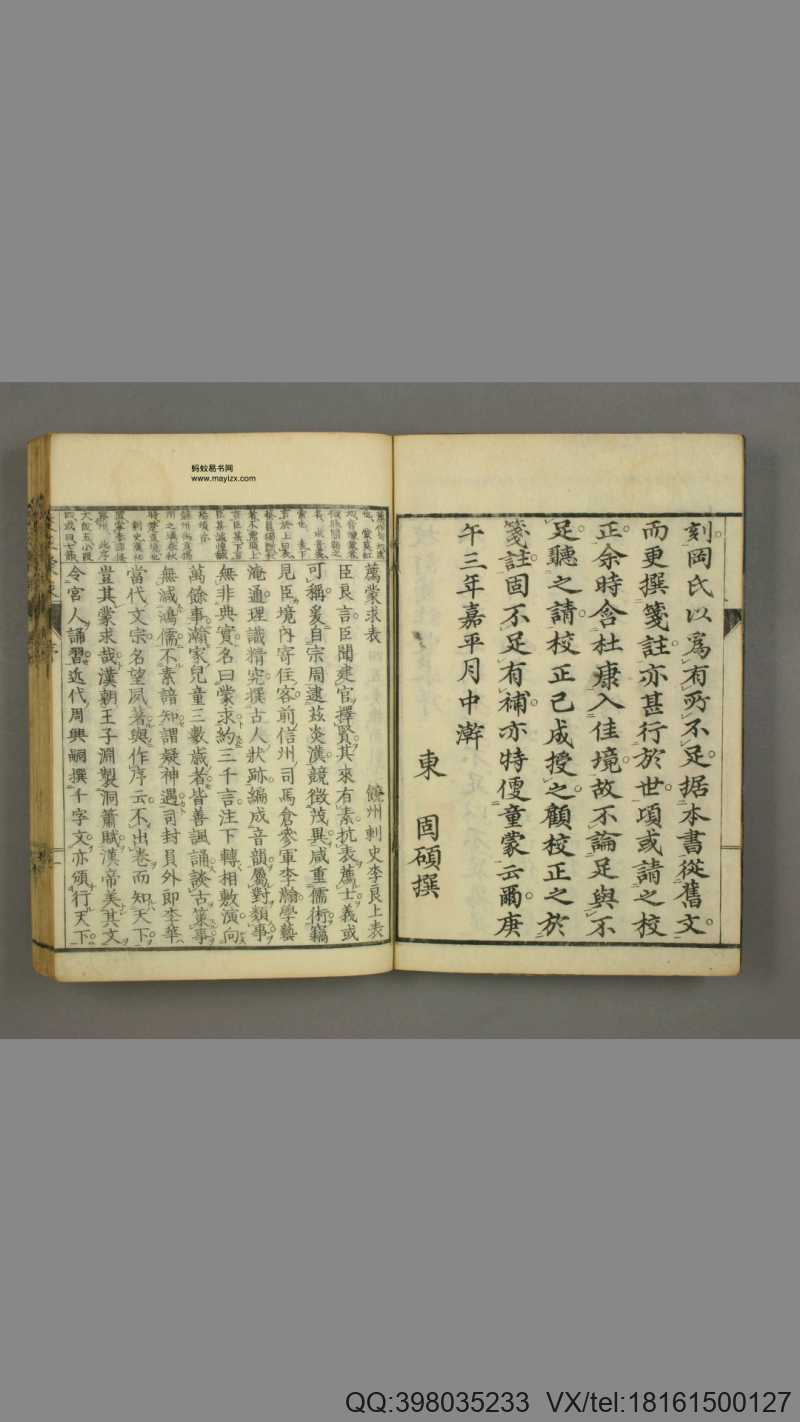 刻岡氏以爲有所不足据本書從舊文
而更撰箋註亦甚行於世項或請之校
正余時含杜康入佳境故不論足與不
足聽之請校正已成授之顧校正之於
箋註固不足有補亦特便童蒙云爾庚
午三年嘉平月中澣
東 固碩撰
薦蒙求表 饒州刺史李良上表
臣良言臣聞建官擇賢其來有素抗表薦士義或
可稱爰自宗周逮茲炎漢競徵茂異咸重儒術竊
見臣境內寄住客前信州司馬倉參軍李瀚學藝
淹通理識精究撰古人狀跡編成音韻屬對類事
無非典實名曰蒙求約三千言注下轉相敷演向
萬餘事瀚家兒童三數歲者皆善諷誦談古策事
無減鴻儒不素諳知謂疑神遇司封員外郎李華
當代文宗名望夙著與作序云不出卷而知天下
豈其蒙求哉漢朝王子淵製洞簫賦漢帝美其文
令官人誦習近代周興嗣撰千字文亦頒行天下
蚂蚁易书网
www.mayizx.com
QQ:398035233 VX/tel:18161500127